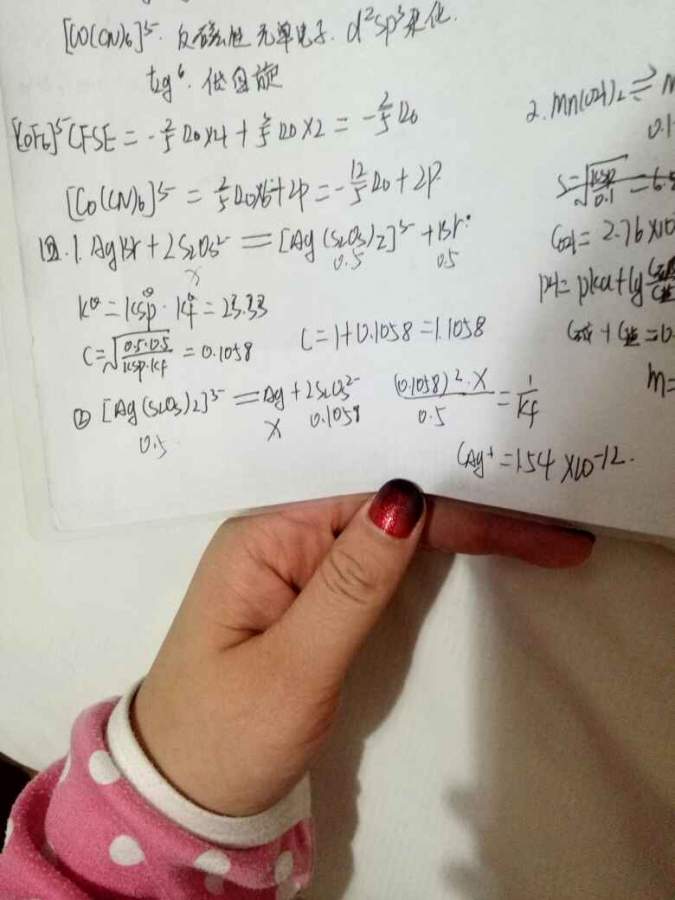 [CO(CN)6]5-. 反磁性 无单电子. d²sp³杂化.
t2g⁶. 低自旋
[CoF6]5- CFSE = -2/5 Δo×4 + 3/5 Δo×2 = -2/5 Δo
[Co(CN)6]5- = 2/5 Δo×6+2P = -12/5 Δo + 2P.
四.1. AgBr + 2S2O3²⁻ = [Ag(S2O3)2]5- + Br-
x 0.5 0.5
K^θ = Ksp^θ · Kf^θ = 23.33
C = √(0.5·0.5/Ksp·Kf) = 0.1058 C = 1+0.1058 = 1.1058
② [Ag(S2O3)2]3- = Ag + 2S2O3²⁻ (0.1058)²·X/0.5 = 1/Kf
0.5 X 0.1058
CAg+ = 1.54×10-12.
2. Mn(OH)2 ⇌ M
0.1
S = √(Ksp/0.1) = 6.5
COH = 2.76×10
PH = pKa + lg
m =